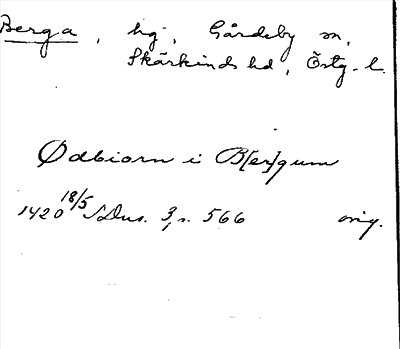 Berga, hg, Gårdeby sn,
Skärkinds hd, Östg. l.
Ødbiorn i B[er]gum
1420 18/5 SDns. 3, s. 566 orig.